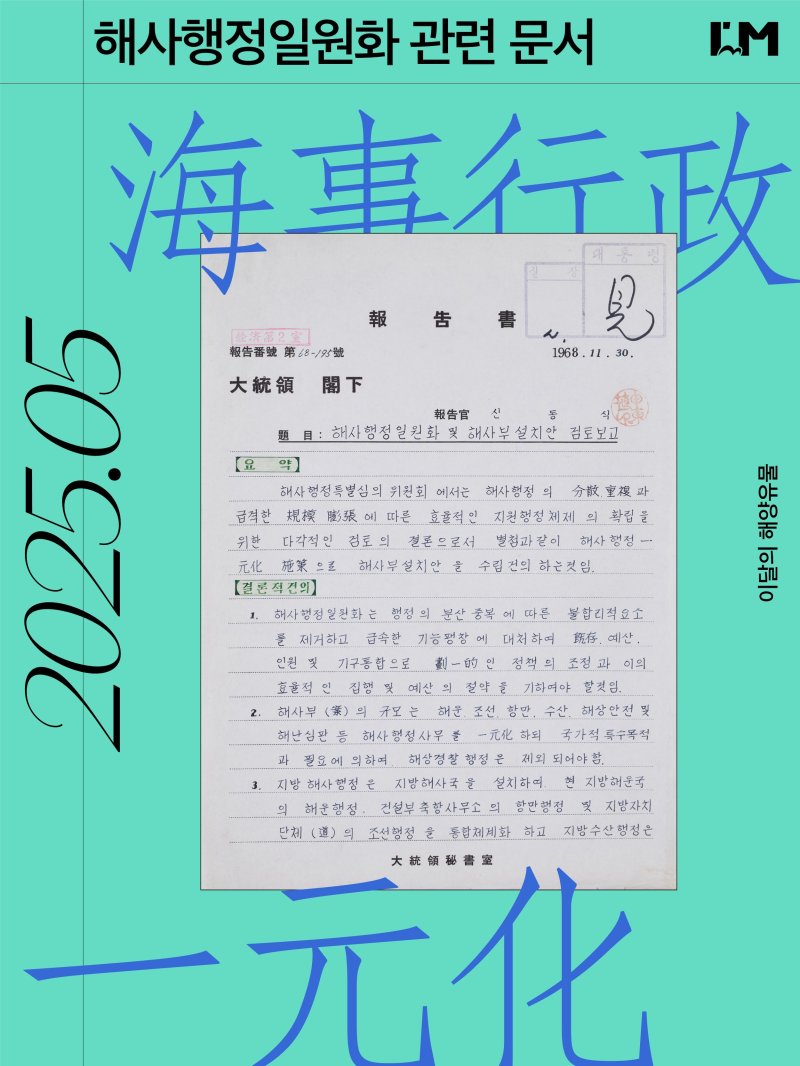 해사행정일원화 관련 문서
海事行政
2025.05
이달의 해양유물
대통령
실 장
見
報告書
經濟第2室
報告番號 第68-195號
1968.11.30.
大統領 閣下
報告官 신동식
題 目 : 해사행정일원화 및 해사부설치안 검토보고
요 약
해사행정특별심의 위원회 에서는 해사행정 의 分散 重複 과
급격한 規模 膨張 에 따른 효율적인 지원행정체제 의 확립을
위한 다각적인 검토 의 결론으로서 별첨과같이 해사행정 一
元化 施策 으로 해사부설치안 을 수립건의 하는것임.
결론적건의
1. 해사행정일원화 는 행정 의 분산 중복 에 따른 불합리적요소
를 제거하고 급속한 기능팽창 에 대처하여 旣存 예산.
인원 및 기구통합으로 劃一的 인 정책 의 조정 과 이의
효율적 인 집행 및 예산 의 절약 을 기하여야 할것임.
2. 해사부 (案) 의 규모 는 해운. 조선. 항만. 수산. 해상안전 및
해난심판 등 해사행정사무 를 一元化 하되 국가적 특수목적
과 필요에 의하여 해상경찰 행정 은 제외 되어야함.
3. 지방 해사행정 은 지방해사국 을 설치하여. 현 지방해운국
의 해운행정. 건설부축항사무소 의 항만행정 및 지방자치
단체 (道) 의 조선행정 을 통합체제화 하고 지방수산행정은
大統領秘書室
一元化